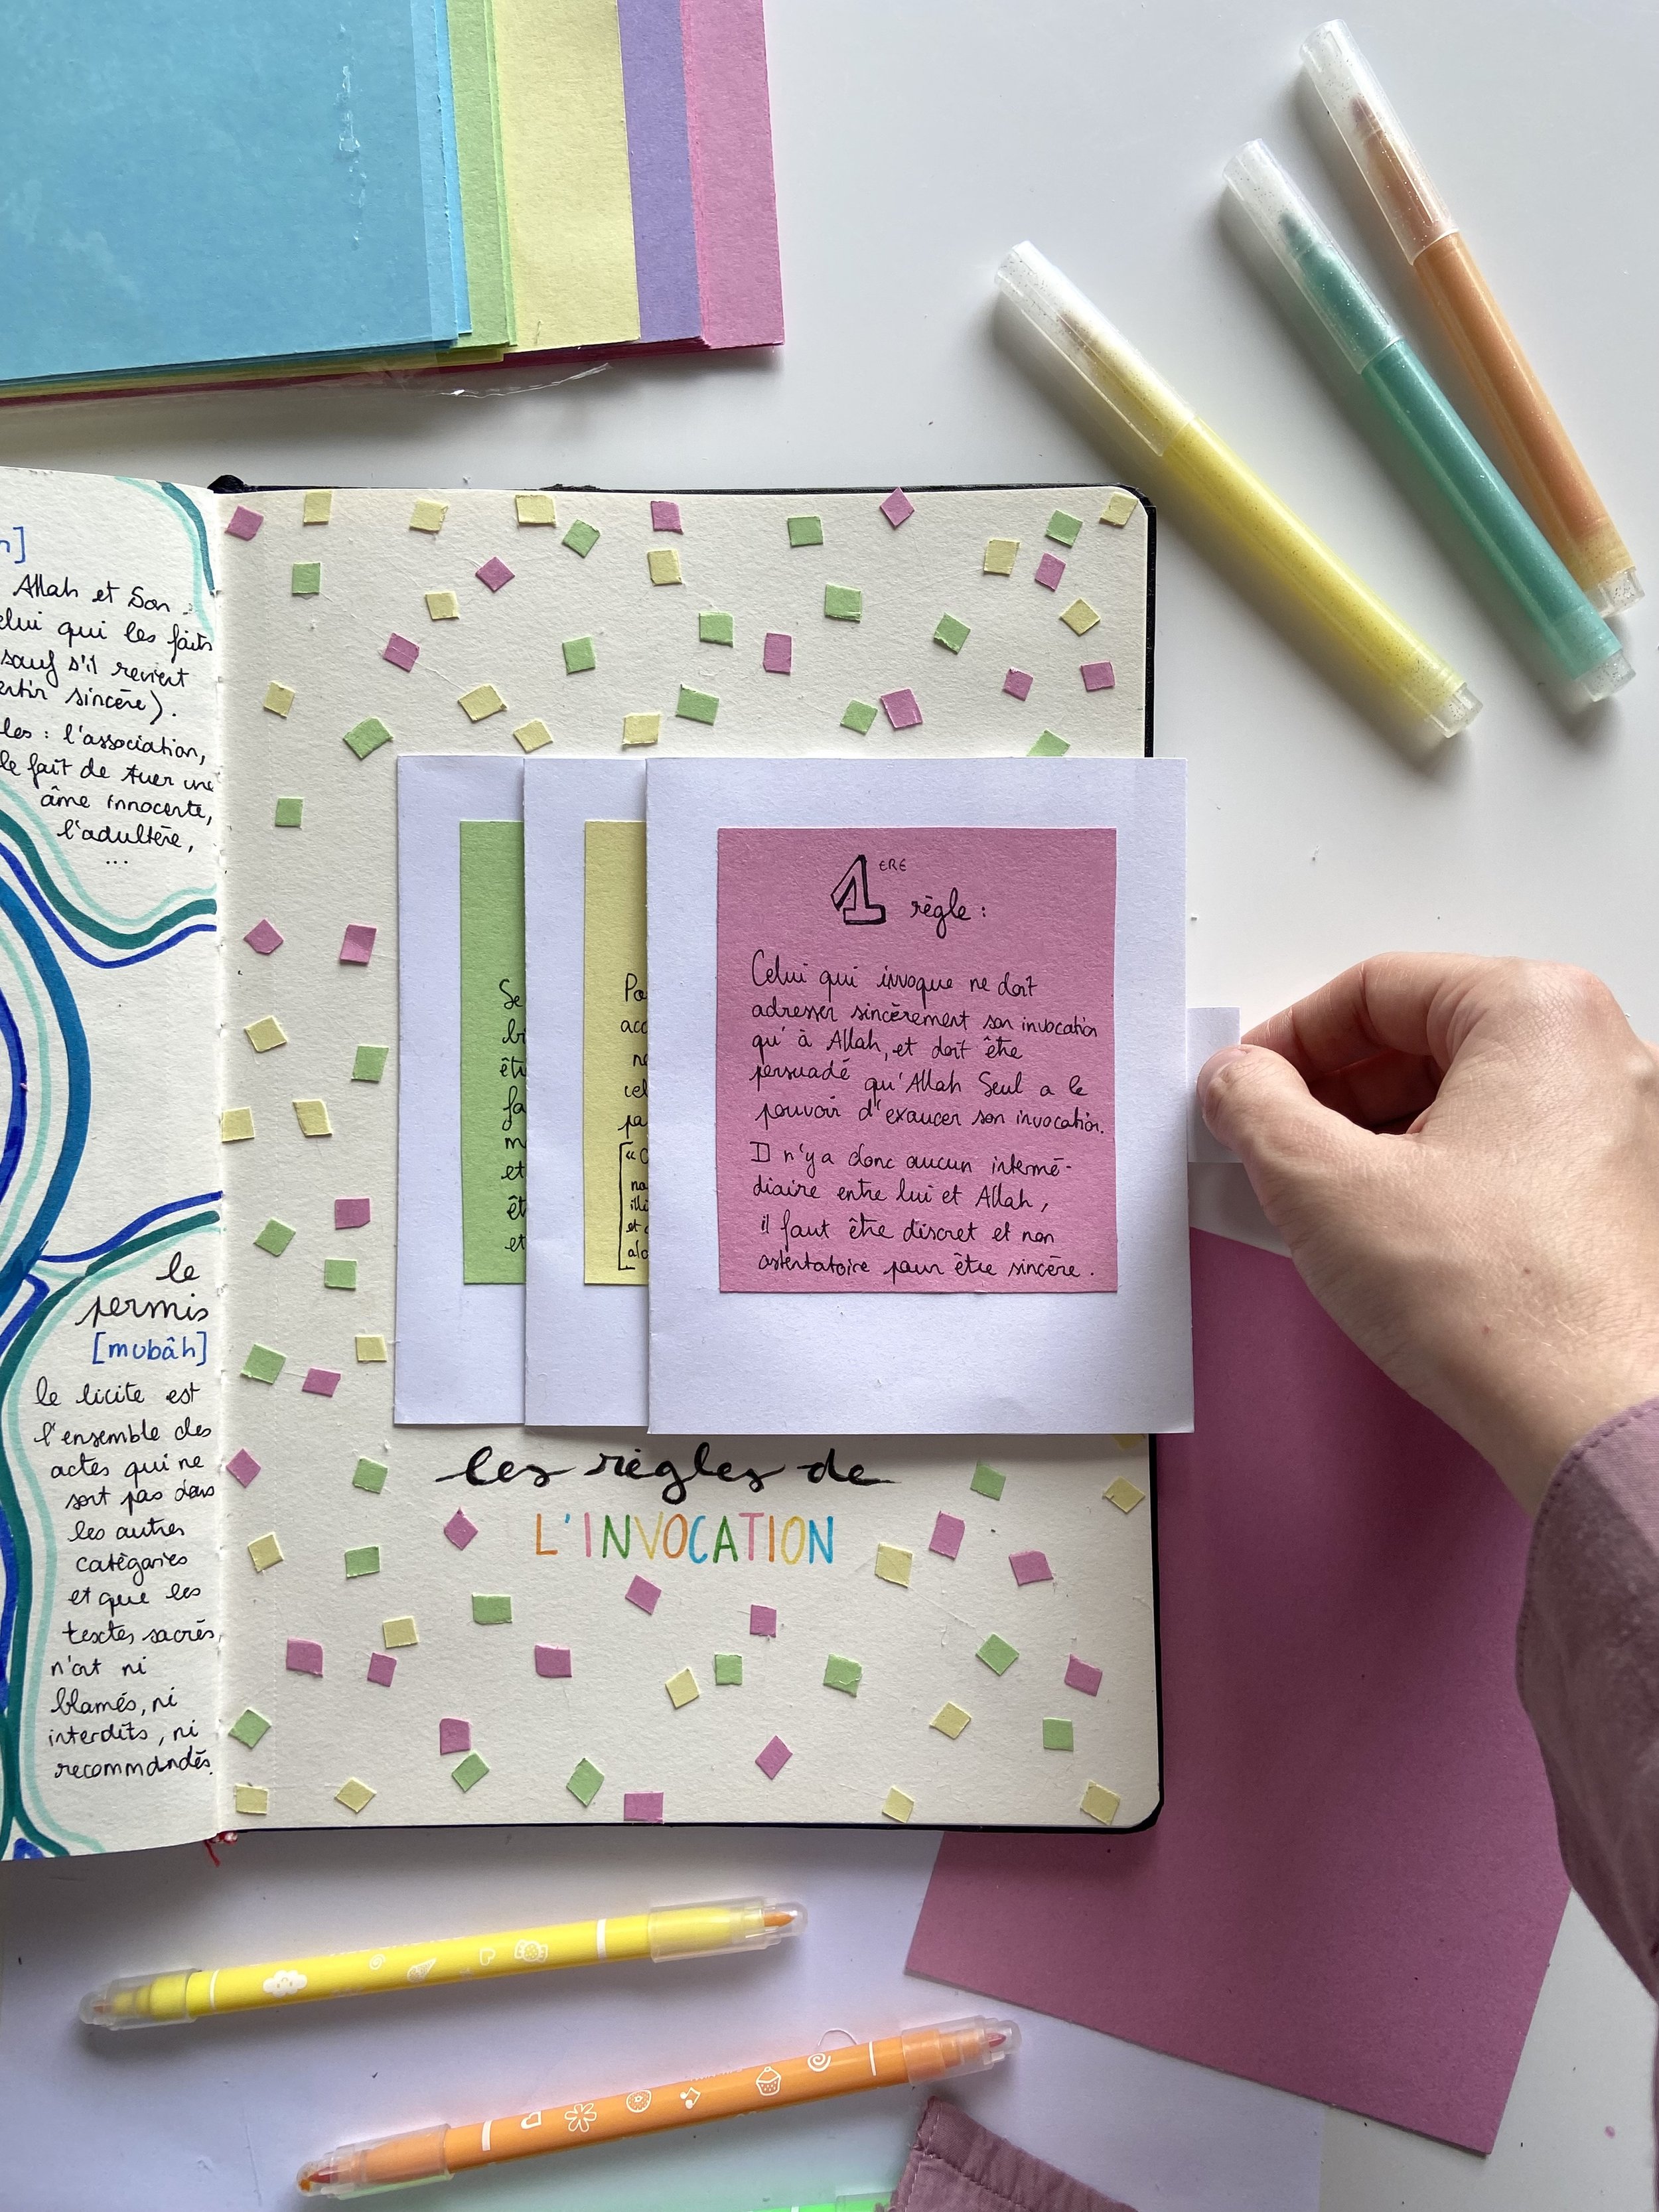 n]
Allah et Son
elui qui les faits
sauf s'il revient
ertir sincère).
les : l'association,
le fait de tuer une
âme innocente,
l'adultère,
...
le
permis
[mubâh]
le licite est
l'ensemble des
actes qui ne
sont pas dans
les autres
catégories
et que les
textes sacrés
n'ont ni
blamés, ni
interdits, ni
recommandés.
Se
bi
êtr
fa
m
et
êt
et
Po
acc
ne
cel
pa
« C
no
illi
et
alo
1ERE
règle :
Celui qui invoque ne doit
adresser sincèrement son invocation
qu'à Allah, et doit être
persuadé qu'Allah Seul a le
pouvoir d'exaucer son invocation.
Il n'y a donc aucun intermé-
diaire entre lui et Allah,
il faut être discret et non
ostentatoire pour être sincère.
les règles de
L'INVOCATION